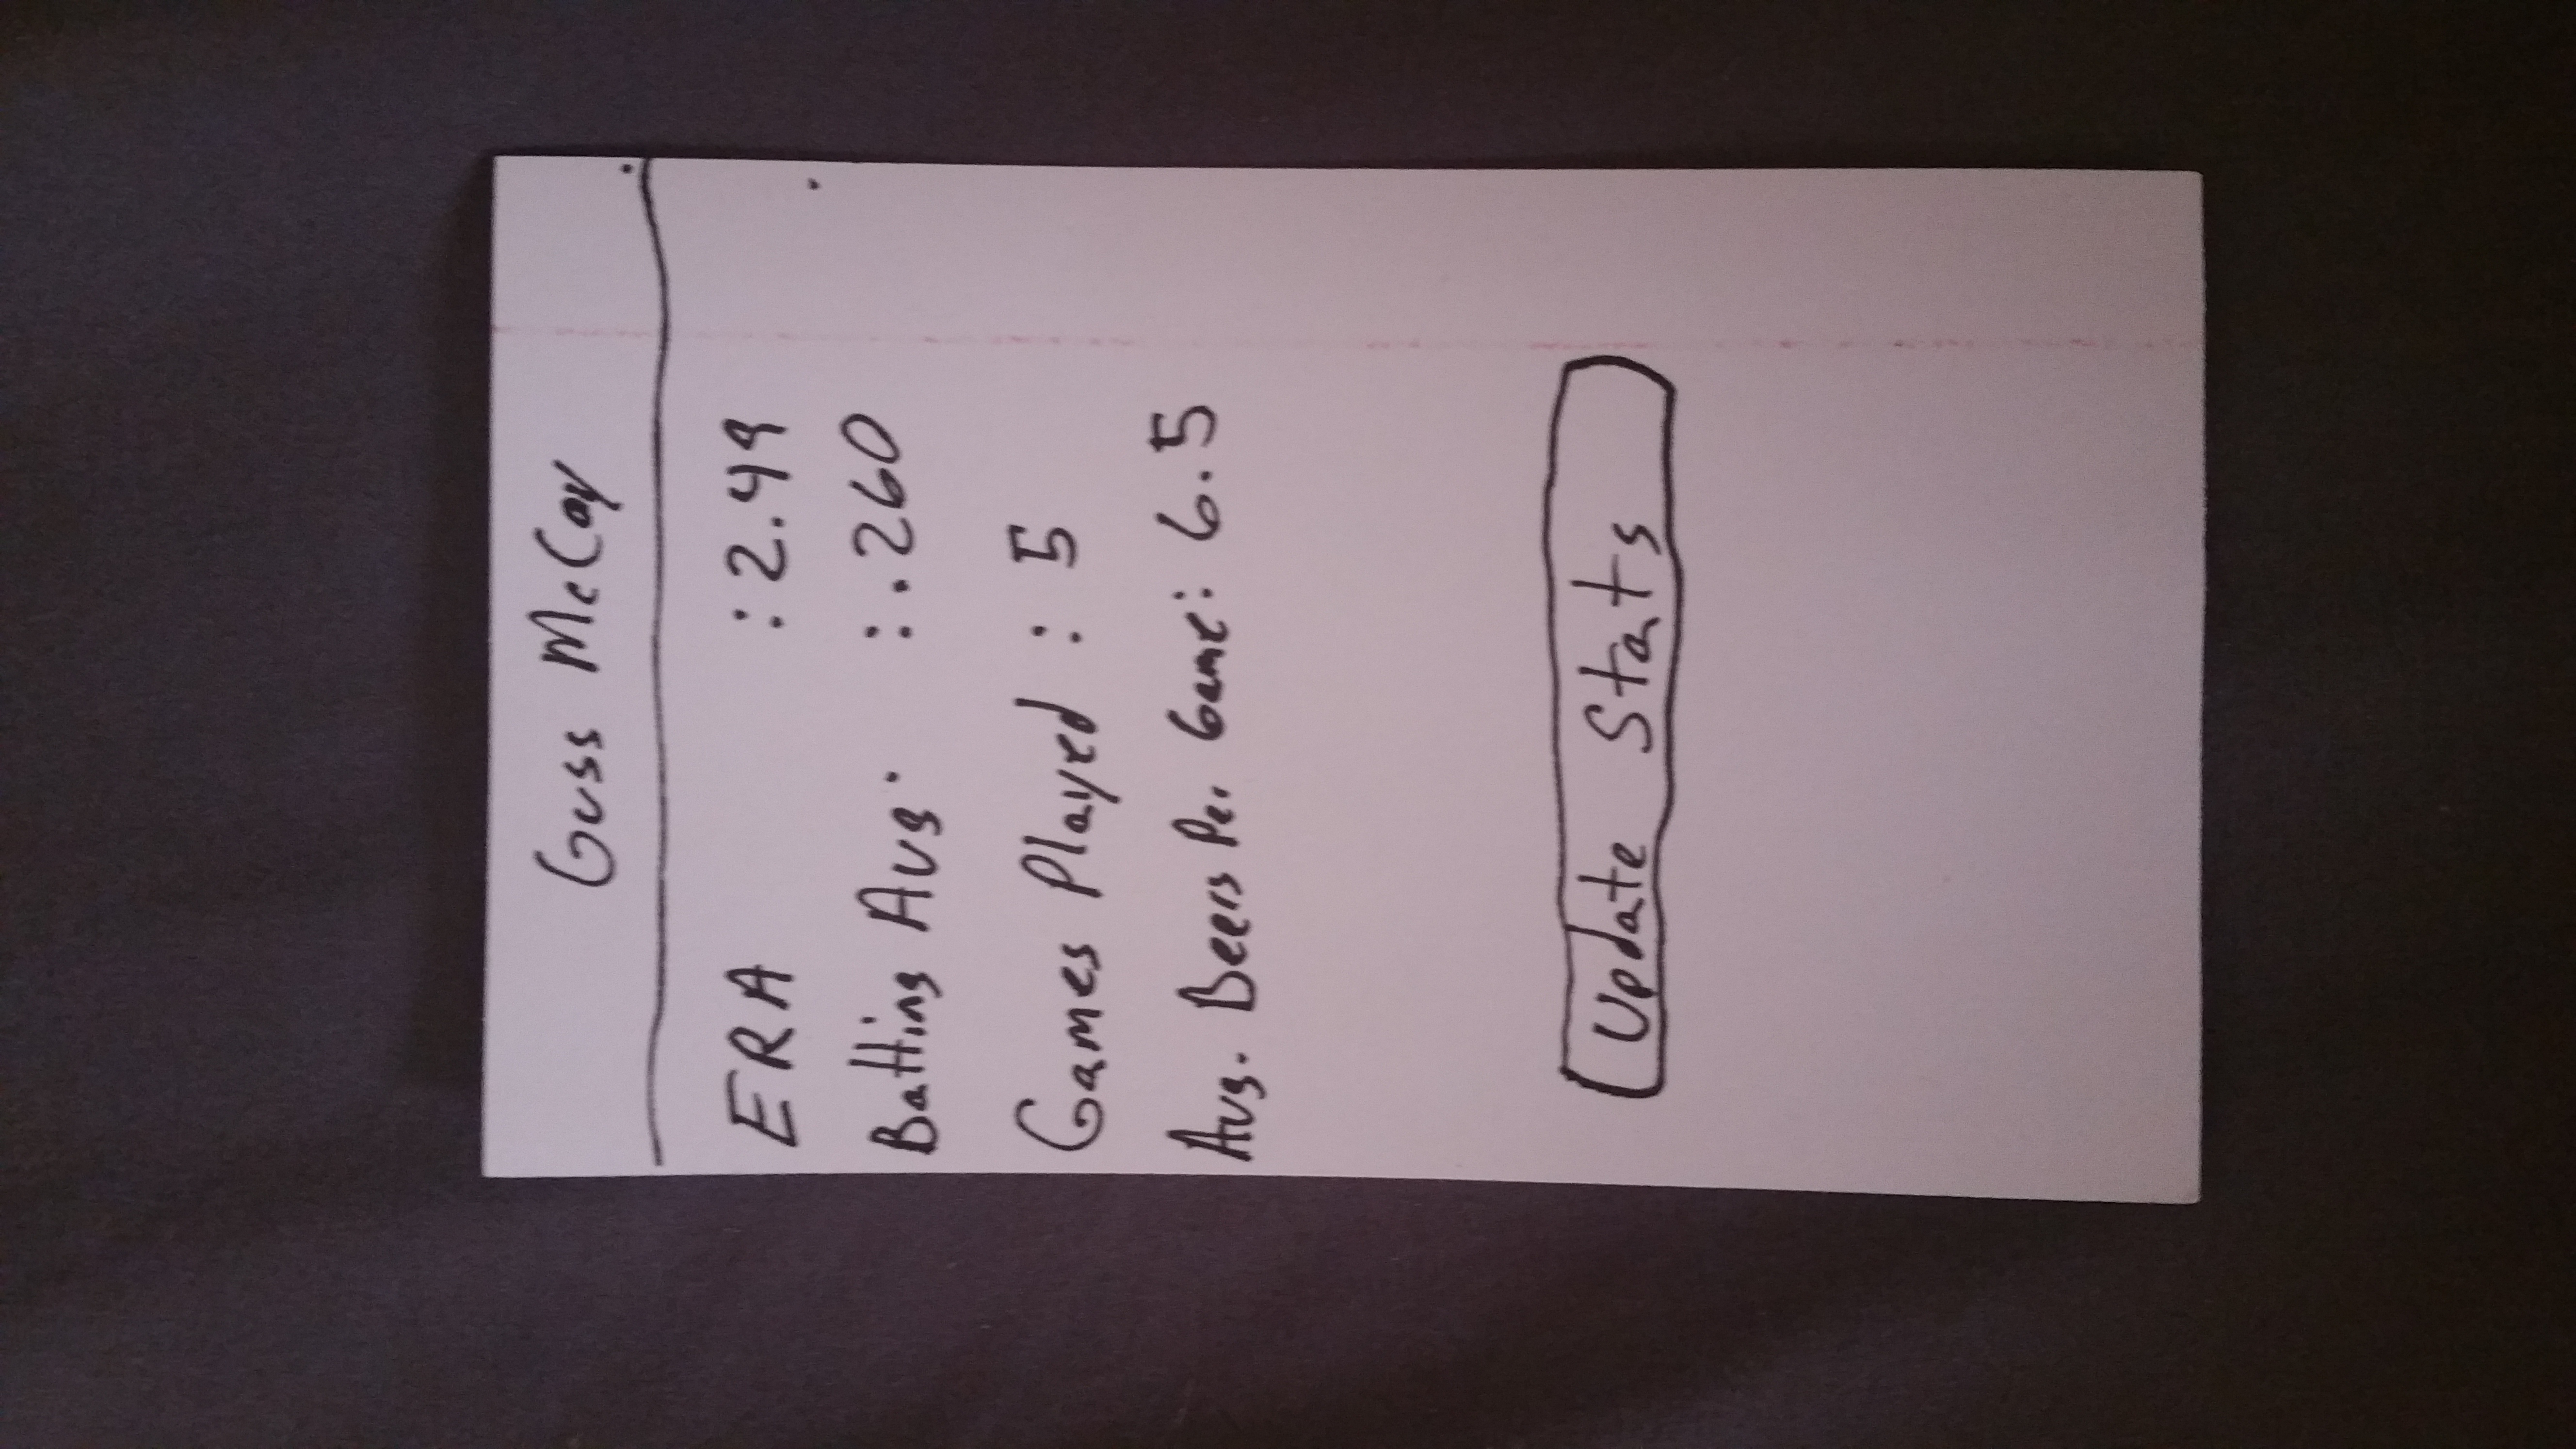 Guss McCoy
ERA : 2.49
Batting Avg. : .260
Games Played : 5
Avg. Beers Per Game: 6.5
Update Stats